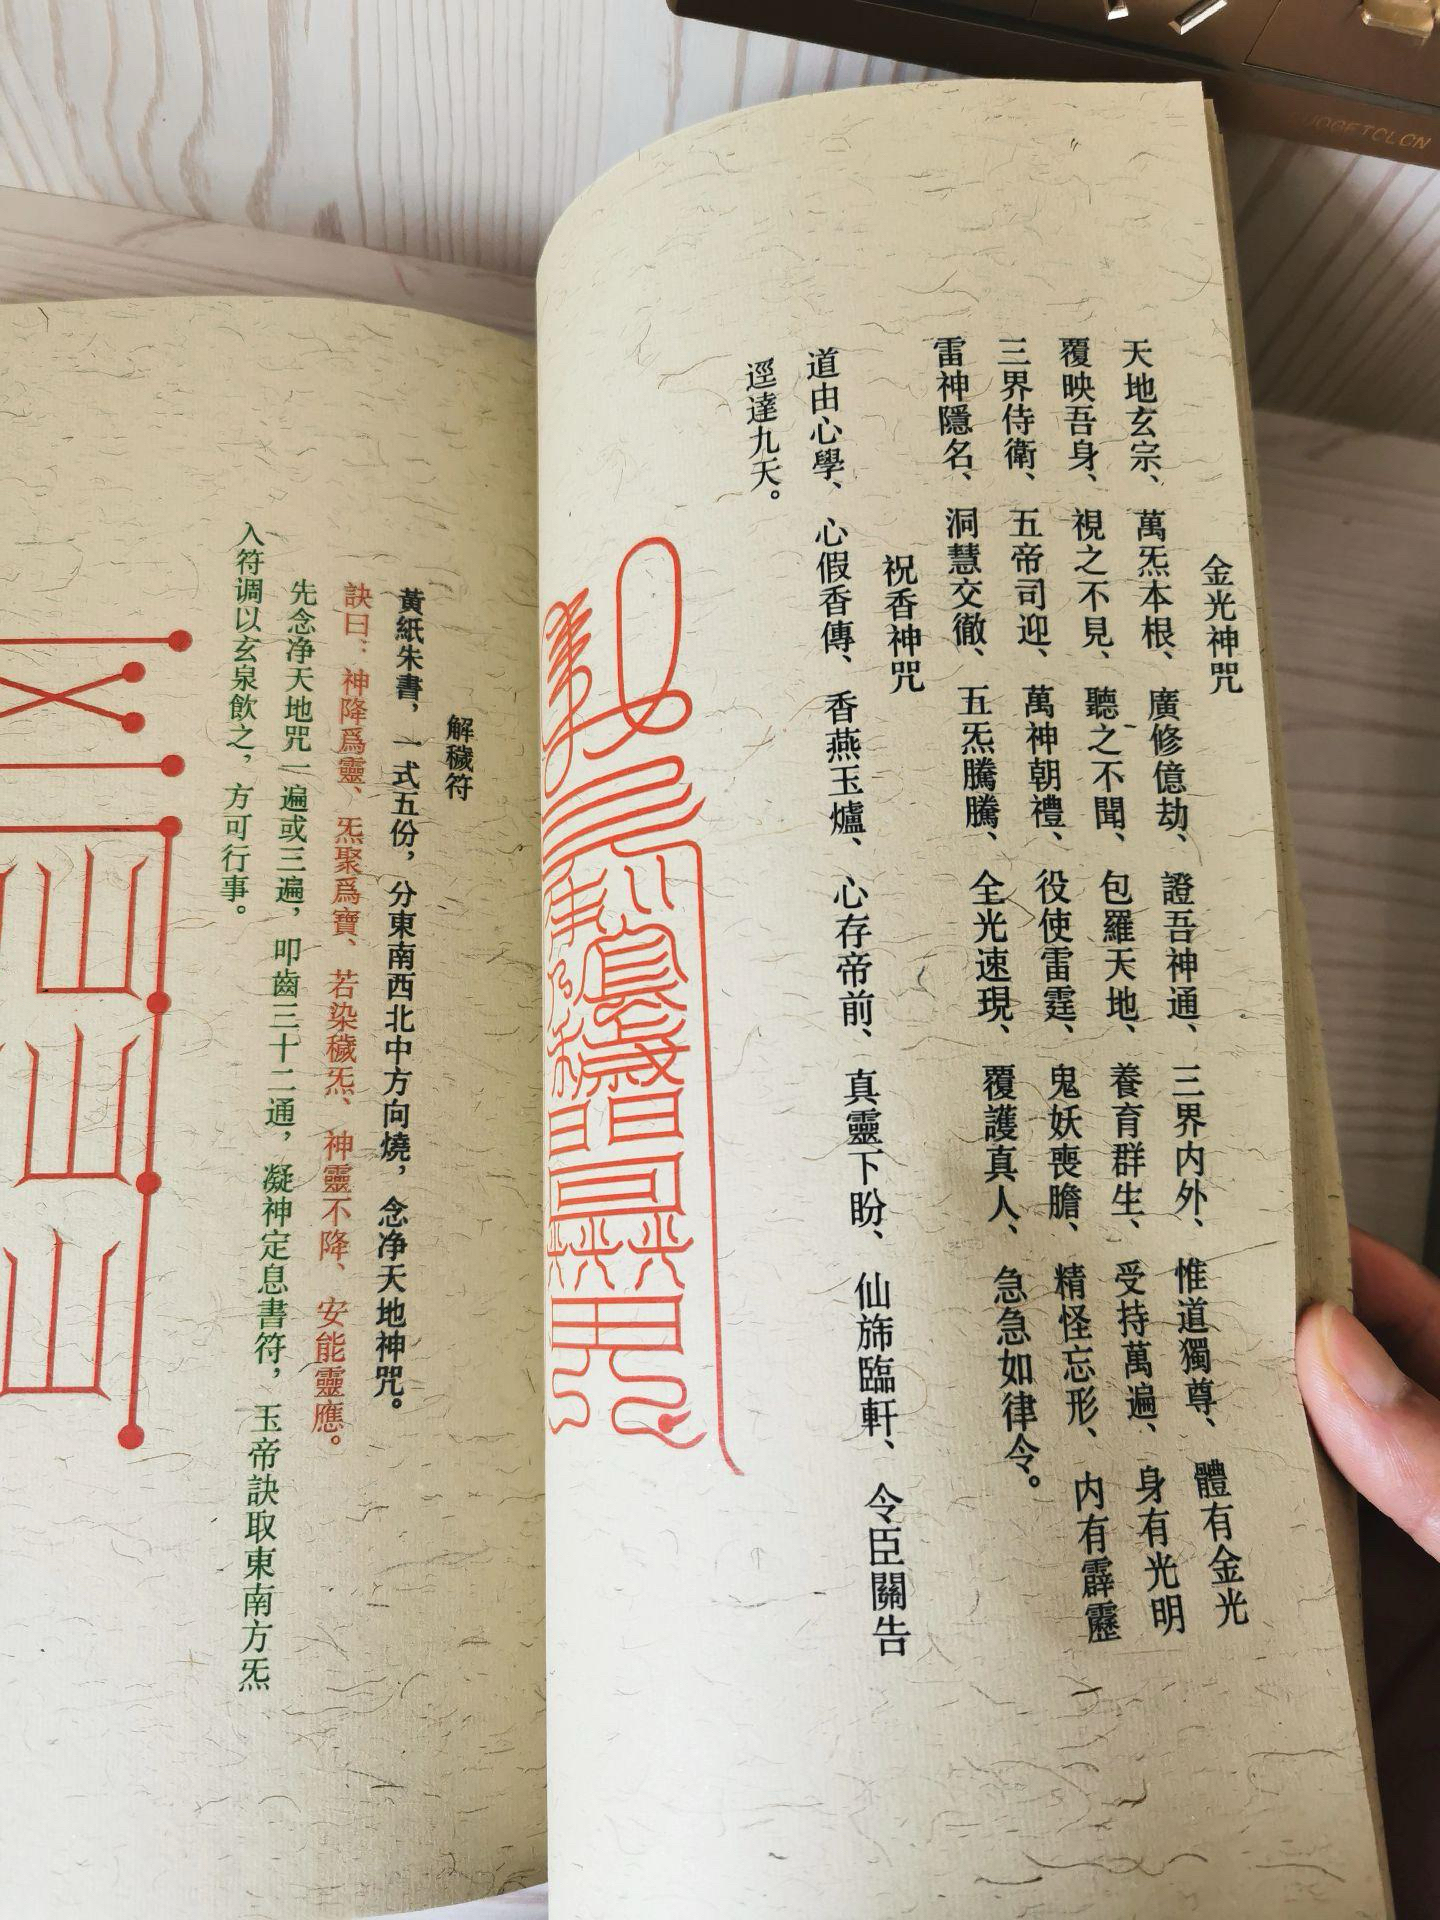 金光神咒
天地玄宗、萬炁本根、廣修億劫、證吾神通、三界内外、惟道獨尊、體有金光
覆映吾身、視之不見、聽之不聞、包羅天地、養育群生、受持萬遍、身有光明
三界侍衛、五帝司迎、萬神朝禮、役使雷霆、鬼妖喪膽、精怪忘形、内有霹靂
雷神隱名、洞慧交徹、五炁騰騰、全光速現、覆護真人、急急如律令。
祝香神咒
道由心學、心假香傳、香燕玉爐、心存帝前、真靈下盼、仙斾臨軒、令臣關告
逕達九天。
解穢符
黃紙朱書，一式五份，分東南西北中方向燒，念净天地神咒。
訣曰：神降爲靈、炁聚爲寶、若染穢炁、神靈不降、安能靈應。
先念净天地咒一遍或三遍，叩齒三十二通，凝神定息書符，玉帝訣取東南方炁
入符调以玄泉飲之，方可行事。